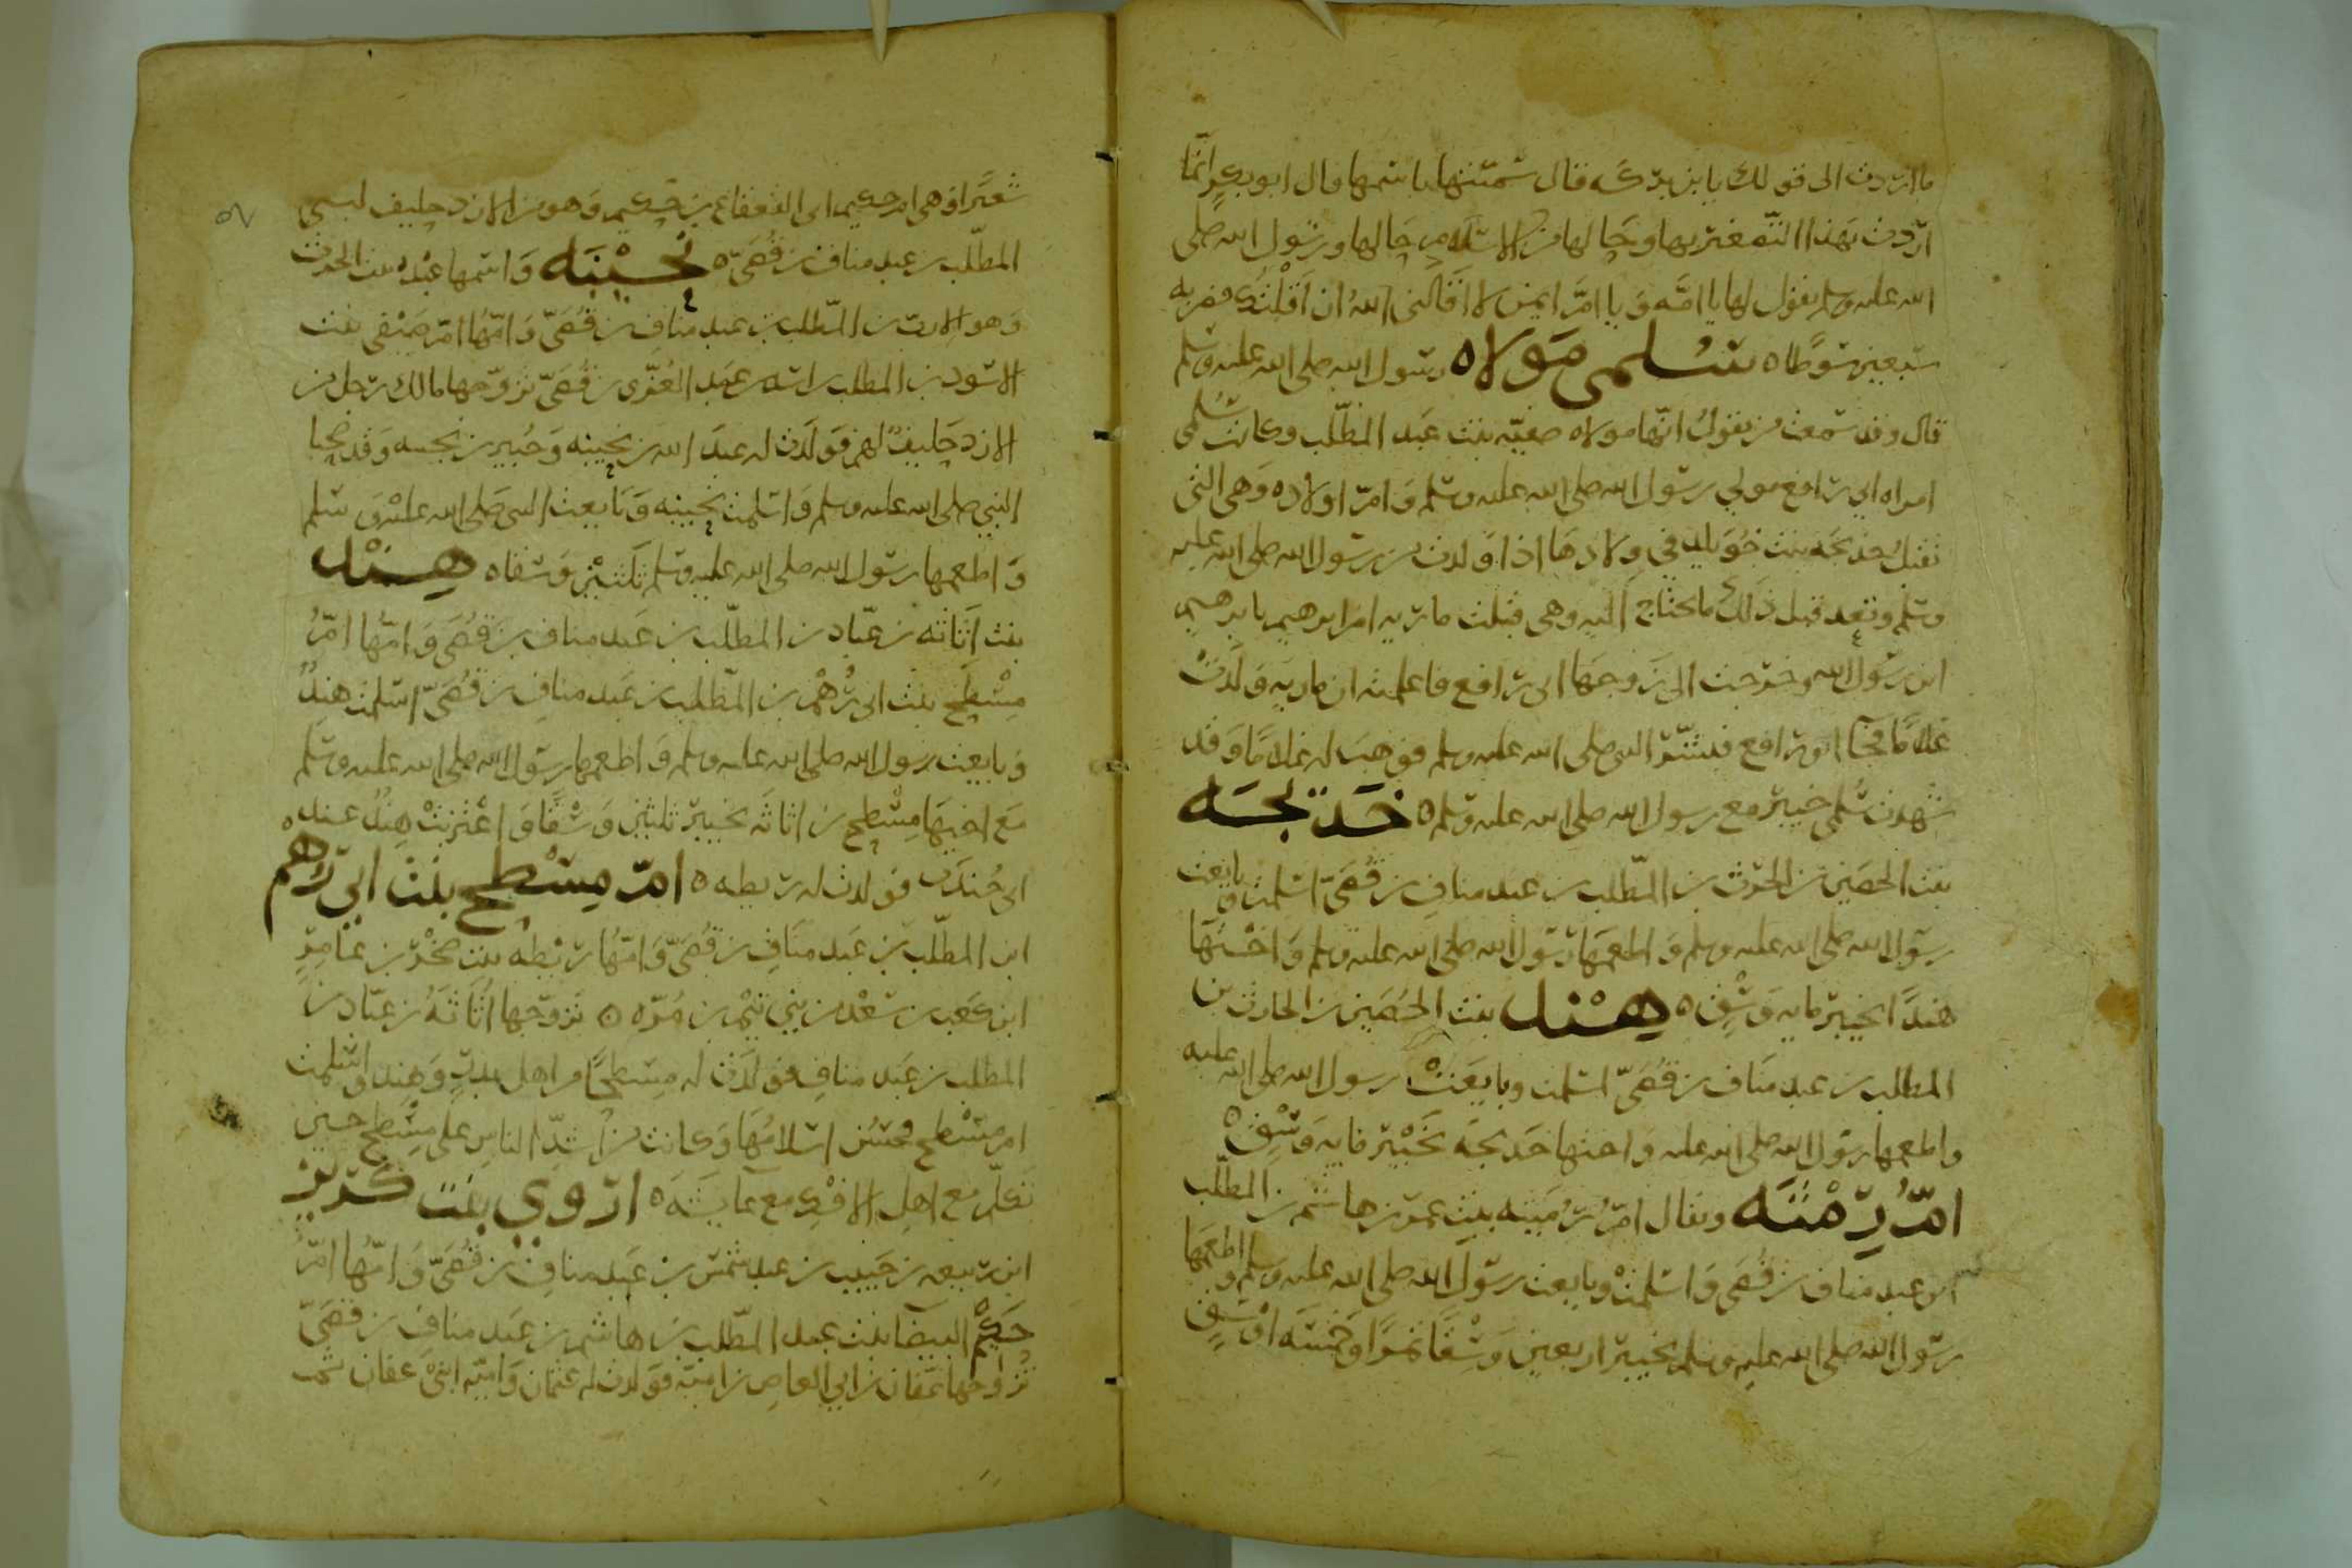 ما اردت الى قولك يا بن بركه قال سمّيتها باسمها قال ابو بكر انما
اردت بهذا التصغير بها وحالها من الاسلام حالها ورسول الله صلى
الله عليه وسلم يقول لها يا امّه ويا امّ ايمن لا اقالني الله ان اقلتك فضربه
سبعين سوطا ه سلمى مولاه رسول الله صلى الله عليه وسلم
قال وقد سمعت من يقول انها مولاه صفيّه بنت عبد المطّلب وكانت سلمى
امراه ابي رافع مولي رسول الله صلى الله عليه وسلم وامّ اولاده وهي التي
تقبل خديجه بنت خويلد في ولادها اذا ولدت من رسول الله صلى الله عليه
وسلم وتعد قبل ذلك ما تحتاج اليه وهي قبلت ماريه ام ابرهيم بابرهيم
ابن رسول الله وخرجت الى زوجها ابي رافع فاعلمته ان ماريه ولدت
غلاما فجا ابو رافع فبشّر النبي صلى الله عليه وسلم فوهب له غلاما وقد
شهدت سلمى خيبر مع رسول الله صلى الله عليه وسلم ه خديجه
بنت الحصين بن الحرث بن المطّلب بن عبد مناف بن قصيّ اسلمت وبايعت
رسول الله صلى الله عليه وسلم واطعمها رسول الله صلى الله عليه وسلم واختها
هندا بخيبر مايه وسق ه هند بنت الحصين بن الحارث بن
المطلب بن عبد مناف بن قصيّ اسلمت وبايعت رسول الله صلى الله عليه
واطعمها رسول الله صلى الله عليه واختها خديجه بخيبر مايه وسق ه
امّ رمثه ويقال امّ رميثه بنت عمر بن هاشم بن المطّلب
ابن عبد مناف بن قصي واسلمت وبايعت رسول الله صلى الله عليه وسلم واطعمها
رسول الله صلى الله عليه وسلم بخيبر اربعين وسقا تمرا وخمسه اوسق
شعيرا وهي ام حكيم ابي القعقاع بن حكيم وهو من الازد حليف لبني
المطّلب بن عبد مناف بن قصيّ ه بحينه واسمها عبده بنت الحرث
وهو الارت بن المطّلب بن عبد مناف بن قصيّ وامّها امّ صيفي بنت
الاسود بن المطلب بن اسد بن عبد العزّى بن قصيّ تزوّجها مالك رجل من
الازد حليف لهم فولدت له عبد الله بن بحينه وجبير بن بحينه وقد صحبا
النبي صلى الله عليه وسلم واسلمت بحينه وبايعت النبي صلى الله عليه وسلم
واطعمها رسول الله صلى الله عليه وسلم ثلثين وسقا ه هند
بنت اثاثه بن عبّاد بن المطّلب بن عبد مناف بن قصي وامّها امّ
مسطح بنت ابي رهم بن المطّلب بن عبد مناف بن قصيّ اسلمت هند
وبايعت رسول الله صلى الله عليه وسلم واطعمها رسول الله صلى الله عليه وسلم
مع اخيها مسطح بن اثاثه بخيبر ثلثين وسقا واغتربت هند عند
ابي جندب فولدت له ريطه ه امّ مسطح بنت ابي رهم
ابن المطّلب بن عبد مناف بن قصيّ وامّها ريطه بنت صخر بن عامر
ابن كعب بن سعد من بني تيم بن مرّه ه تزوّجها اثاثه بن عبّاد بن
المطلب بن عبد مناف فولدت له مسطحا من اهل بدر وهند واسلمت
ام مسطح فحسن اسلامها وكانت من اشدّ الناس على مسطح حين
تكلّم مع اهل الافك مع عايشه ه اروي بنت كريز
ابن ربيعه بن حبيب بن عبد شمس بن عبد مناف بن قصيّ وامّها امّ
حكيم البيضا بنت عبد المطّلب بن هاشم بن عبد مناف بن قصيّ
تزوجها عفان بن ابي العاص بن اميّه فولدت له عثمان واميّه ابني عفان ثم